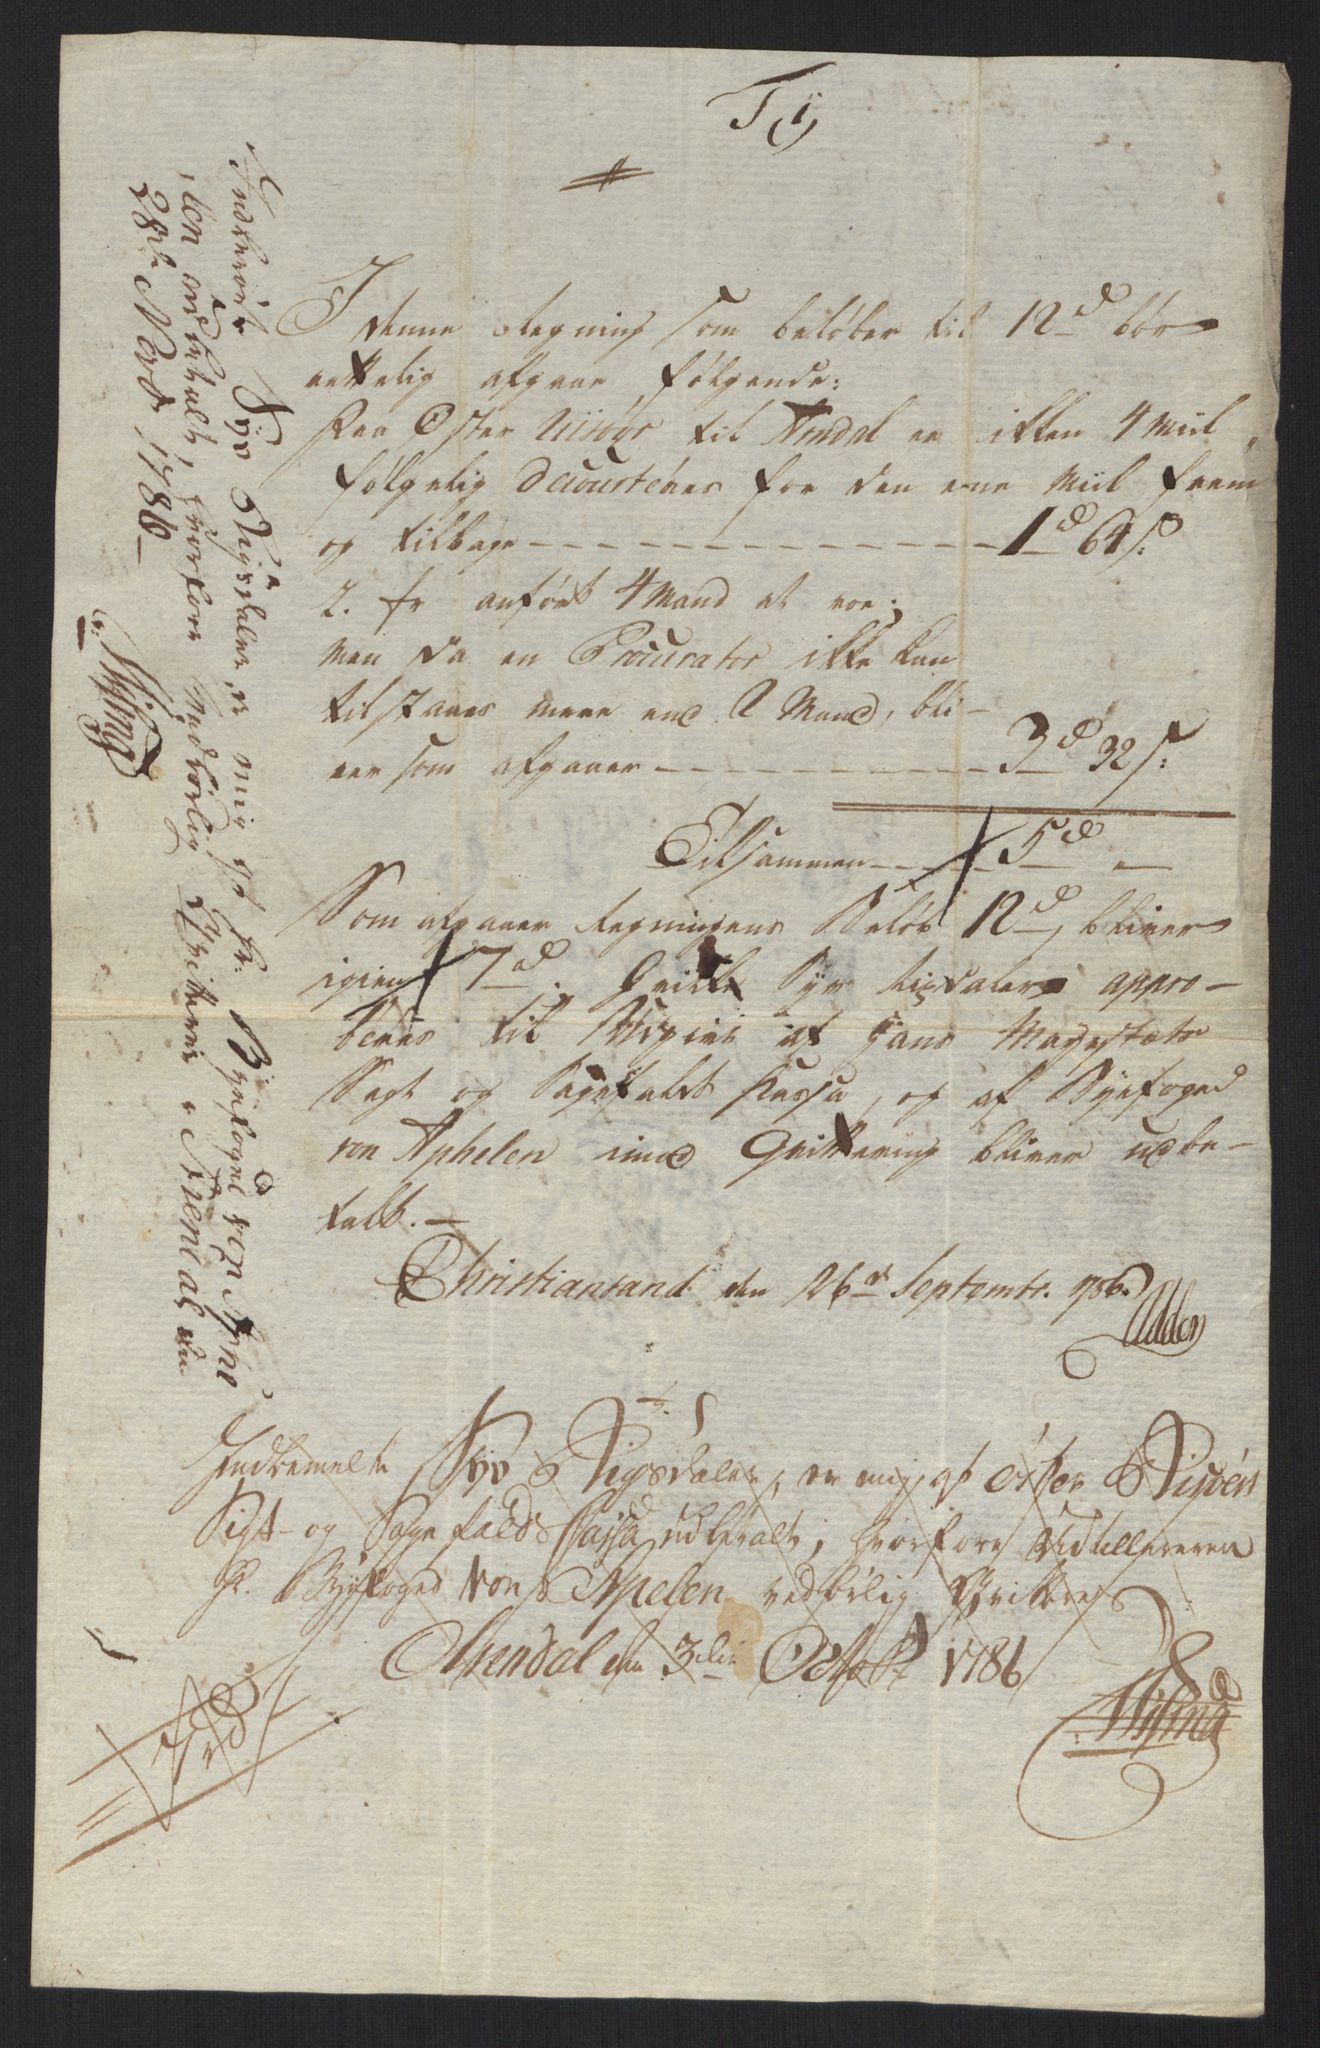 I denne Regning som beløber til 12 d bør
rettelig afgaae følgende:
Fra Øster Riisøer til Arndal er ikken 4 Miil
følgelig decourteres for den ene Miil frem
og tilbage — 1 d 64 s:
2. er anført 4 Mand at roe;
men da en Procurator ikke kan
tilstaaes meere end 2 Mand, bli-
ver som afgaaer — 3 d 32 s:
Tilsammen — 5 d —
Som afgaaer Regningens Beløb 12 d, bliver
igien 7 d. Hvilke Syv Rigsdaler appro-
beres til Udgivt af Hans Mayestæts
Sigt og Sagefalds Kassa, og af Byefoged
von Aphelen imod Qvittering bliver udbe-
talt. —
Christiansand den 26de Septembr. 1786.
Adder
Indbemelte Syv Rigsdaler, er mig af Øster Riisøers
Sigt- og Sagefalds Cassa udbetalt, hvorfore Meddeleren
Hr. Byefoged von Apelen vedbørlig Qvitteres
Arendal den 3die Octobr 1786
Indførte Syv Rigsdaler er mig af Hr. Byefoged von Aphe
len udbetalt, hvorfore vedbørlig Qvitteres. Arendal den
28de Novbr 1786 —